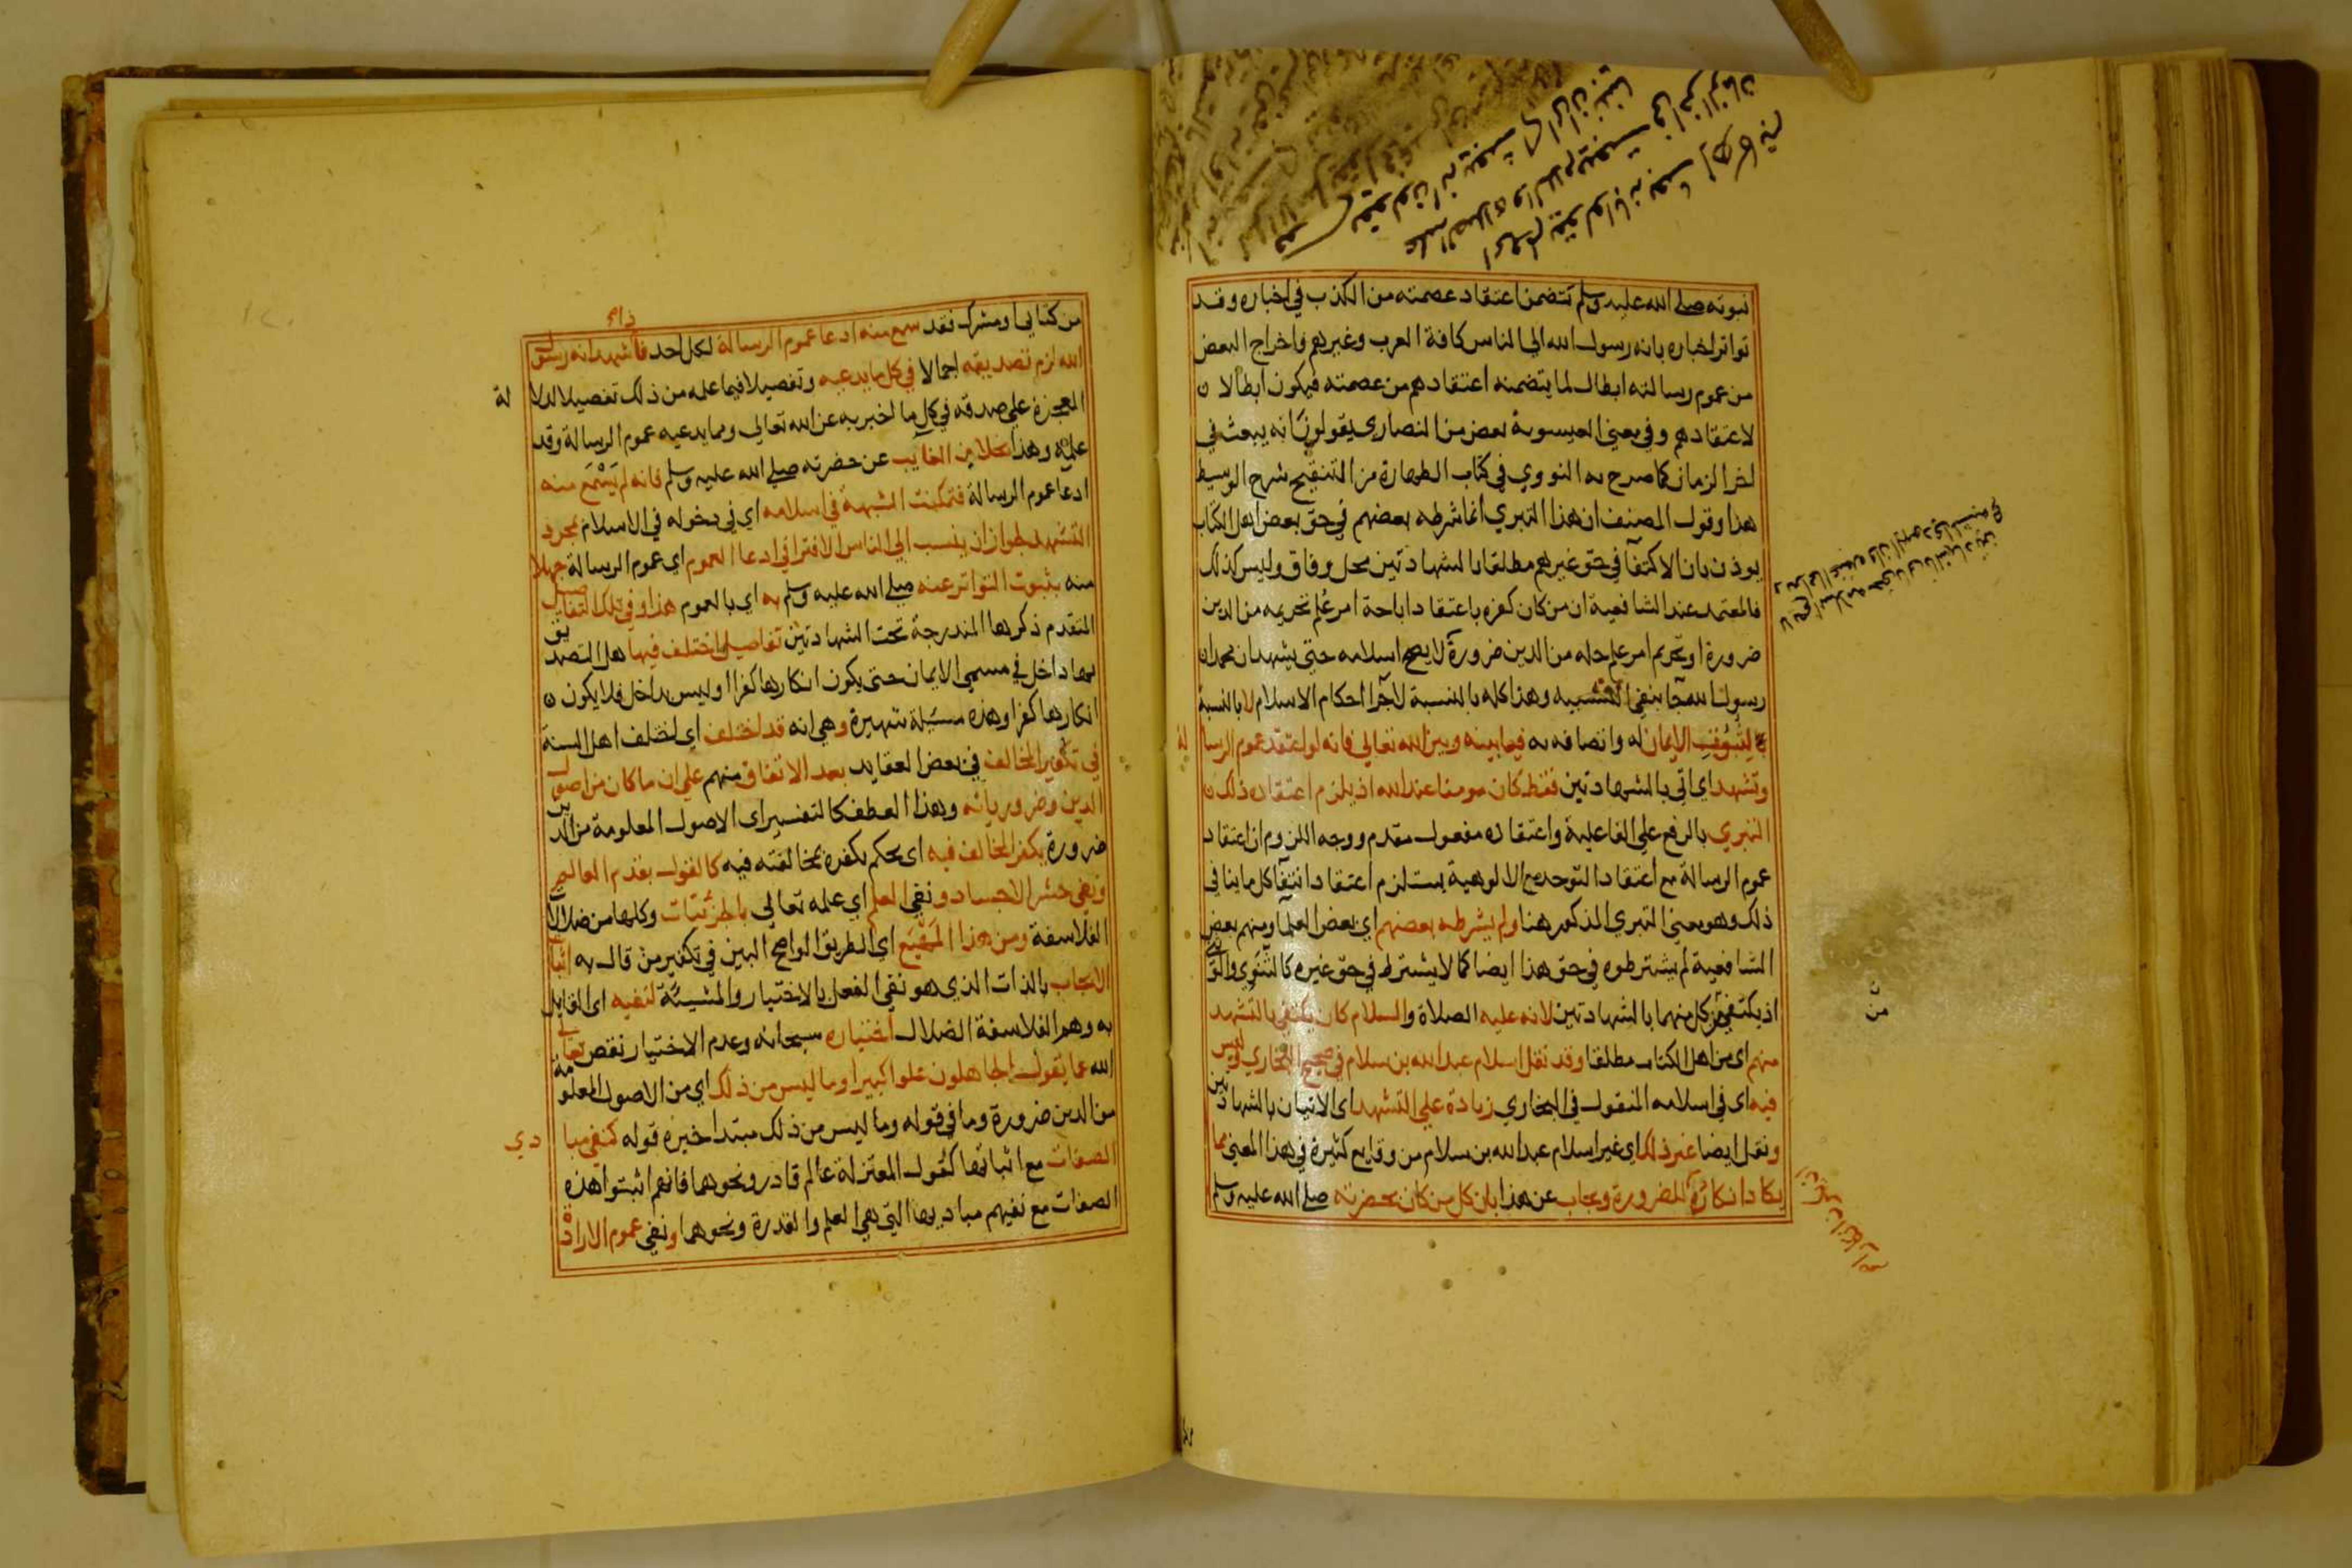 نبوته صلى الله عليه وسلم تتضمن اعتقاد عصمته من الكذب في اخباره وقد
تواتر اخباره بانه رسول الله الى الناس كافة العرب وغيرهم واخراج البعض
من عموم رسالته ابطال لما يتضمنه اعتقادهم من عصمته فيكون ابطالا
لاعتقادهم وفي معنى العيسوية بعض من النصارى يقولون انه يبعث في
اخر الزمان كما صرح به النووي في كتاب الطهارة من التنقيح شرح الوسيط
هذا وقول المصنف ان هذا التبري انما شرطه بعضهم في حق بعض اهل الكتاب
يوذن بان الاكتفا في حق غيرهم مطلقا بالشهادتين محل وفاق وليس كذلك
فالمعتمد عند الشافعية ان من كان كفره باعتقاد اباحة امر علم تحريمه من الدين
ضرورة او تحريم امر علم حله من الدين ضرورة لا يصح اسلامه حتى يشهد ان محمدا
رسول الله جا بنفي التشبيه وهذا كله بالنسبة لاجرا احكام الاسلام لا بالنسبة
لثبوت الايمان له واتصافه به فيما بينه وبين الله تعالى فانه لو اعتقد عموم الرسا لة
وتشهد اي اتى بالشهادتين فقط كان مومنا عند الله اذ يلزم اعتقاده ذلك
التبري بالرفع على الفاعلية واعتقاده مفعول مقدم ووجه اللزوم ان اعتقاد
عموم الرسالة مع اعتقاد التوحد مع الالوهية يستلزم اعتقاد انتفا كل ما ينافي
ذلك وهو معنى التبري المذكور هنا ولم يشرطه بعضهم اي بعض العلما ومنهم بعض
الشافعية لم يشترطوه في حق هذا ايضا كما لا يشترط في حق غيره كالثنوي والوثني
اذ يكتفي من كل منهما بالشهادتين لانه عليه الصلاة والسلام كان يكتفي بالتشهد
منهم اي من اهل الكتاب مطلقا وقد نقل اسلام عبد الله بن سلام في صحيح البخاري وليس
فيه اي في اسلامه المنقول في البخاري زيادة على التشهد اي الاتيان بالشهادتين
ونقل ايضا غير ذلك اي غير اسلام عبد الله بن سلام من وقايع كثيرة في هذا المعنى مما
يكاد انكاره انكار الضرورة ويجاب عن هذا بان كل من كان بحضرته صلى الله عليه وسلم
من كتابي او مشرك فقد سمع منه ادعا عموم الرسالة لكل احد فاذا شهد انه رسول
الله لزم تصديقه اجمالا في كل ما يدعيه وتفصيلا فيما علمه من ذلك تفصيلا لدلا لة
المعجزة على صدقه في كل ما اخبر به عن الله تعالى ومما يدعيه عموم الرسالة وقد
علمه وهذا بخلاف الغايب عن حضرته صلى الله عليه وسلم فانه لم يسمع منه
ادعا عموم الرسالة فتمكنت الشبهة في اسلامه اي في دخوله في الاسلام بمجرد
التشهد لجواز ان ينسب الى الناس الافترا في ادعا العموم اي عموم الرسالة جهلا
منه بثبوت التواتر عنه صلى الله عليه وسلم به اي بالعموم هذا وفي تلك التفاصيل
المتقدم ذكرها المندرجة تحت الشهادتين تفاصيل اختلف فيها هل التصديق
بها داخل في مسمى الايمان حتى يكون انكارها كفرا او ليس بداخل فلا يكون
انكارها كفرا وهذه مسئلة شهيرة وهي انه قد اختلف اي اختلف اهل السنة
في تكفير المخالف في بعض العقايد بعد الاتفاق منهم على ان ما كان من اصول
الدين وضرورياته وهذا العطف كالتفسير اي الاصول المعلومة من الدين
ضرورة يكفر المخالف فيه اي يحكم بكفره بمخالفته فيه كالقول بقدم العالم
ونفي حشر الاجساد ونفي العلم اي علمه تعالى بالجزئيات وكلها من ضلالات
الفلاسفة ومن هذا المهيع اي الطريق الواضح البين في تكفير من قال به اثبات
الايجاب بالذات الذي هو نفي الفعل بالاختيار والمشيئة لنفيه اي القايل
به وهو الفلاسفة الضلال اختياره سبحانه وعدم الاختيار نقص تعالى
الله عما يقول الجاهلون علوا كبيرا وما ليس من ذلك اي من الاصول المعلومة
من الدين ضرورة وما في قوله وما ليس من ذلك مبتدا خبره قوله كنفي مبا دي
الصفات مع اثباتها كقول المعتزلة عالم قادر ونحوهما فانهم اثبتوا هذه
الصفات مع نفيهم مباديها التي هي العلم والقدرة ونحوهما ونفي عموم الارادة